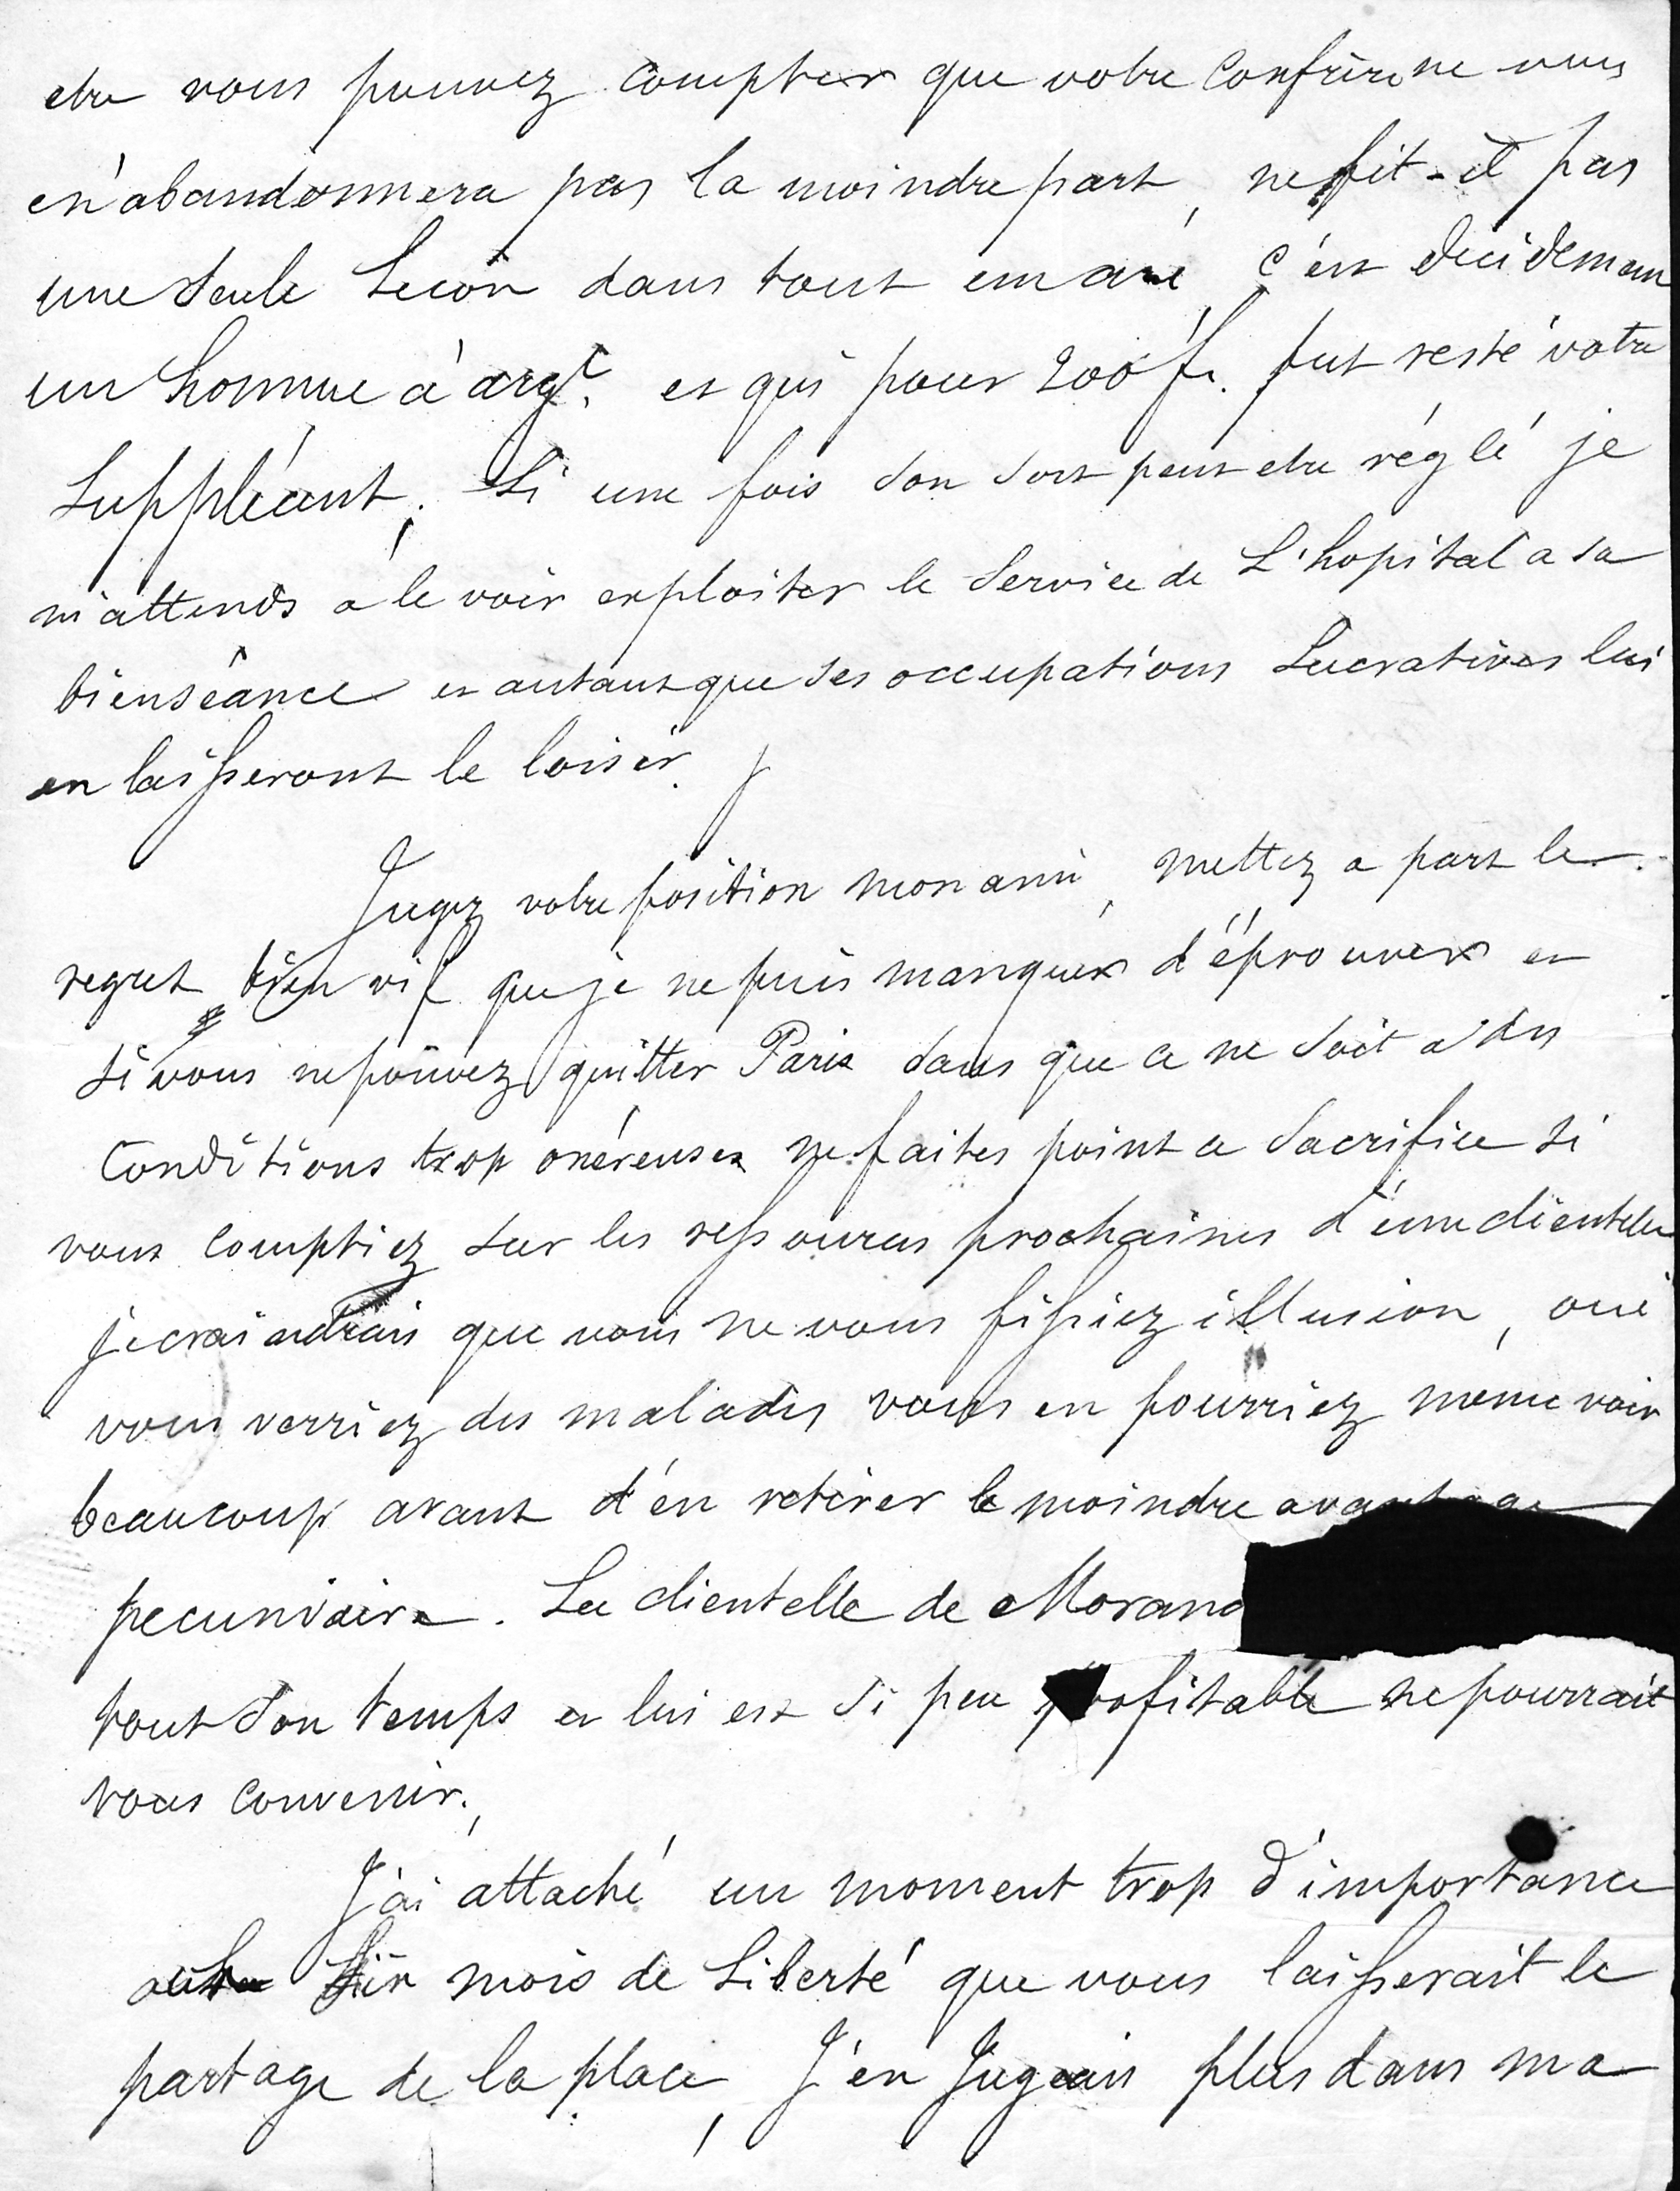 etre vous pouvez compter que votre confrère ne vous
en abandonnera pas la moindre part, ne fit-il pas
une seule Lecon dans tout un an, c'est decidemen
un homme à argt. et qui pour 200 f. fut resté votre
suppléant. Si une fois son sort peut etre réglé je
m'attends a le voir exploiter le service de L'hopital a sa
bienséance et autant que ses occupations Lucratives lui
en laisseront le loisir.
Jugez votre position mon ami, mettez a part le
regret bien vif que je ne puis manquer d'éprouver et
si vous ne pouvez quitter Paris sans que ce ne soit a des
Conditions trop onéreuses ne faites point ce sacrifice si
vous comptiez sur les ressources prochaines d'une clientelle
je craindrais que vous ne vous fissiez illusion, oui
vous verriez des malades vous en pourriez même voir
beaucoup avant d'en retirer le moindre avantage
pecuniaire. La clientelle de Morand
tout son temps et lui est si peu profitable ne pourrait
vous convenir.
J'ai attaché un moment trop d'importance
six mois de Liberté que vous laisserait le
partage de la place, J'en Jugeais plus dans ma